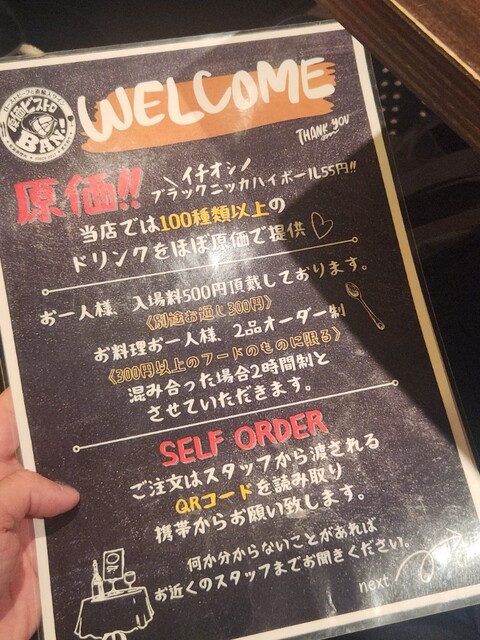 原価ビストロ
BAN!
WELCOME
THANK YOU
原価!!
＼イチオシ／
ブラックニッカハイボール55円!!
当店では100種類以上の
ドリンクをほぼ原価で提供♡
お一人様、入場料500円頂戴しております。
《別途お通し300円》
お料理お一人様、2品オーダー制
《300円以上のフードのものに限る》
混み合った場合2時間制と
させていただきます。
SELF ORDER
ご注文はスタッフから渡される
QRコードを読み取り
携帯からお願い致します。
何か分からないことがあれば
お近くのスタッフまでお聞きください。
next